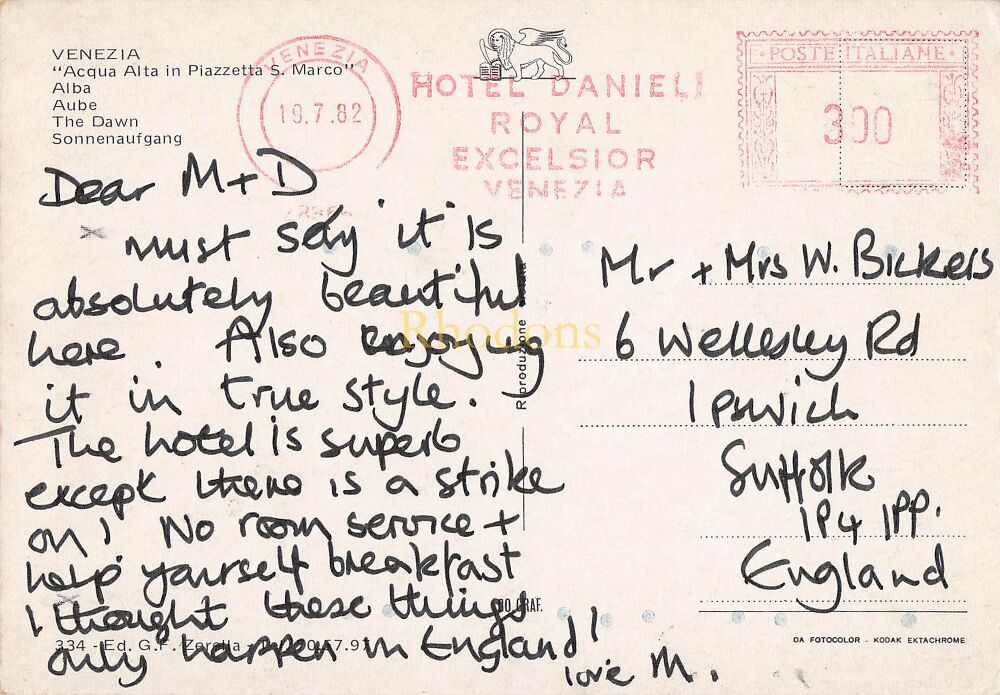 VENEZIA
"Acqua Alta in Piazzetta S. Marco"
Alba
Aube
The Dawn
Sonnenaufgang
VENEZIA
19.7.82
HOTEL DANIELI
ROYAL
EXCELSIOR
VENEZIA
POSTE ITALIANE
300
Dear M + D
must say it is
absolutely beautiful
here. Also enjoying
it in true style.
The hotel is superb
except there is a strike
on! No room service +
help yourself breakfast
I thought these things
only happen in England!
love M.
Mr + Mrs W. Bickers
6 Wellesley Rd
Ipswich
Suffolk
IP4 1PP.
England
Rhodons
Riproduzione
334 - Ed. G.F. Zerella
DA FOTOCOLOR - KODAK EKTACHROME